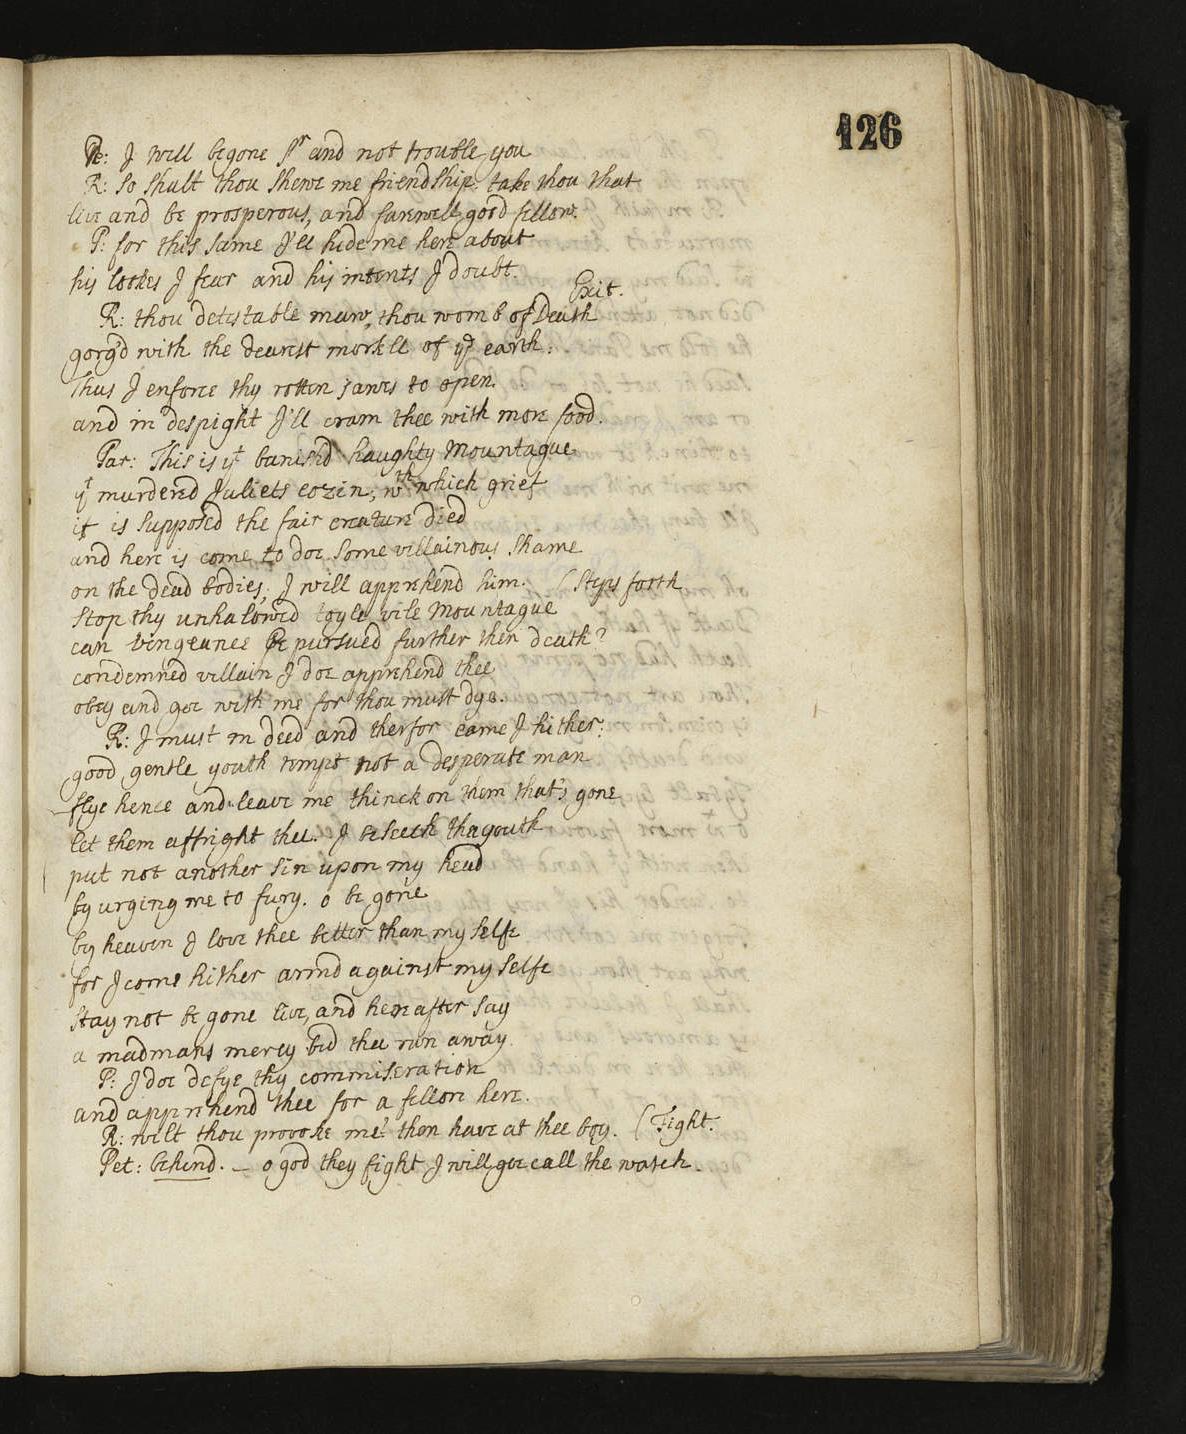 126
Pe: I will begone Sr and not trouble you
R: So shalt thou shewe me friendship. take thou that
live and be prosperous, and farwell good fellow.
P: for this same I'll hide me here about
his lookes I fear and his intents I doubt.
Exit.
R: thou detestable maw, thou womb of Death
gorg'd with the dearest morsell of ye earth.
Thus I enforce thy rotten jawes to open.
and in despight I'll cram thee with more food.
Par: This is yt banishd haughty Mountague
yt murdered Juliets cozin, wth which grief
it is supposed the fair creature died
and here is come to doe some villainous shame
on the dead bodies, I will apprehend him. (Steps forth
stop thy unhalowed toyle vile Mountague
can vengeance be pursued further then death?
condemned villain I doe apprehend thee
obey and goe with me for thou must dye.
R: I must in deed and therfor came I hither:
good gentle youth tempt not a desperate man
flye hence and leave me thinck on them that's gone
let them affright thee. I beseech the youth
put not another sin upon my head
by urging me to fury. o be gone
by heaven I love thee better than my selfe
for I come hither armd against my selfe
stay not be gone live, and hereafter say
a madmans mercy bid thee run away.
P: I doe defye thy commiseration
and apprehend thee for a fellon here.
R: wilt thou provoke me? then have at thee boy. (Fight.
Pet: behind. — o god they fight I will goe call the watch.